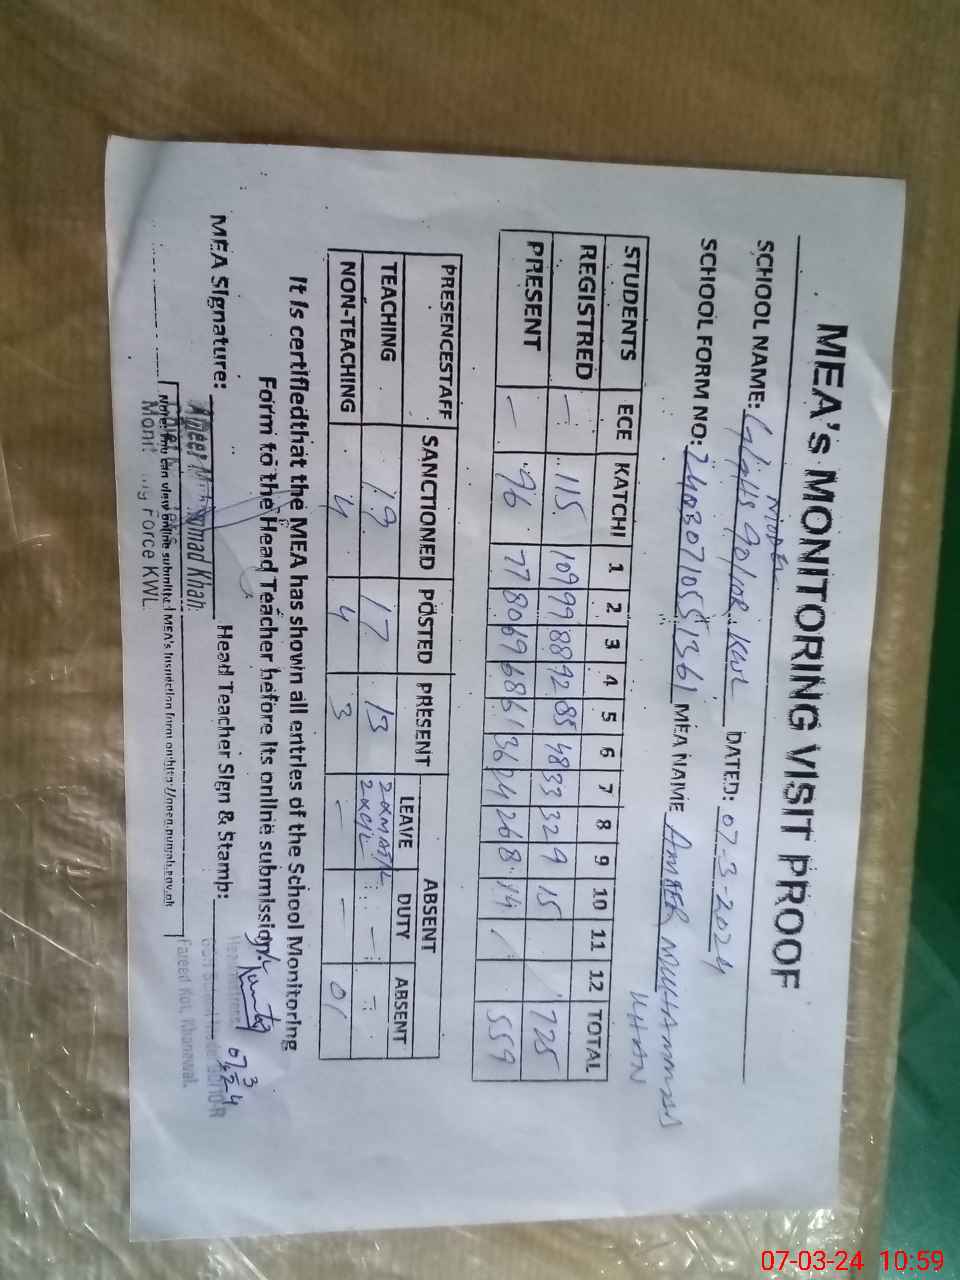 MEA's MONITORING VISIT PROOF
MODEL
SCHOOL NAME: G/GHS 90/10R KWL DATED: 07-3-2024
KHAN
SCHOOL FORM NO: MEA NAME AMEER MUHAMMAD
STUDENTS ECE KATCHI 1 2 3 4 5 6 7 8 9 10 11 12 TOTAL
REGISTRED — 115 109 99 88 92 85 48 33 32 9 15 / 725
PRESENT — 96 77 80 69 68 61 36 24 26 8 14 / 559
PRESENCESTAFF SANCTIONED POSTED PRESENT ABSENT
LEAVE DUTY ABSENT
TEACHING 19 17 13 2xMat/L 2xC/L — —
NON-TEACHING 4 4 3 — — 01
It is certifiedthat the MEA has showin all entries of the School Monitoring
Form to the Head Teacher before its onilne submission.
MEA Signature: Head Teacher Sign & Stamp:
Ameer Muhammad Khan
Monitoring Force KWL
07-3-24
Note: You can view online submitted MEA's Inspection form on:http://open.punjab.gov.pk
Fareed Kot, Khanewal.
07-03-24 10:59